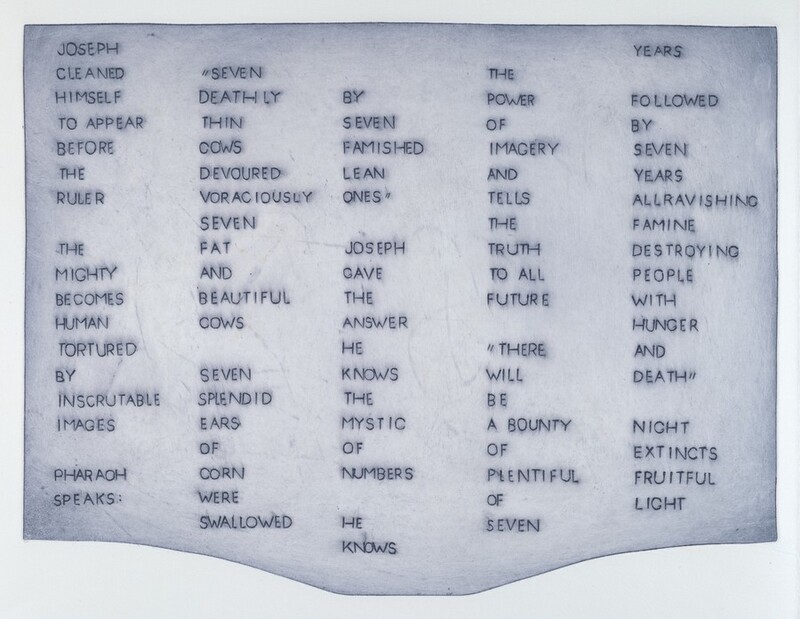 JOSEPH
CLEANED
HIMSELF
TO APPEAR
BEFORE
THE
RULER
THE
MIGHTY
BECOMES
HUMAN
TORTURED
BY
INSCRUTABLE
IMAGES
PHARAOH
SPEAKS:
"SEVEN
DEATHLY
THIN
COWS
DEVOURED
VORACIOUSLY
SEVEN
FAT
AND
BEAUTIFUL
COWS
SEVEN
SPLENDID
EARS
OF
CORN
WERE
SWALLOWED
BY
SEVEN
FAMISHED
LEAN
ONES"
JOSEPH
GAVE
THE
ANSWER
HE
KNOWS
THE
MYSTIC
OF
NUMBERS
HE
KNOWS
THE
POWER
OF
IMAGERY
AND
TELLS
THE
TRUTH
TO ALL
FUTURE
"THERE
WILL
BE
A BOUNTY
OF
PLENTIFUL
OF
SEVEN
YEARS
FOLLOWED
BY
SEVEN
YEARS
ALLRAVISHING
FAMINE
DESTROYING
PEOPLE
WITH
HUNGER
AND
DEATH"
NIGHT
EXTINCTS
FRUITFUL
LIGHT